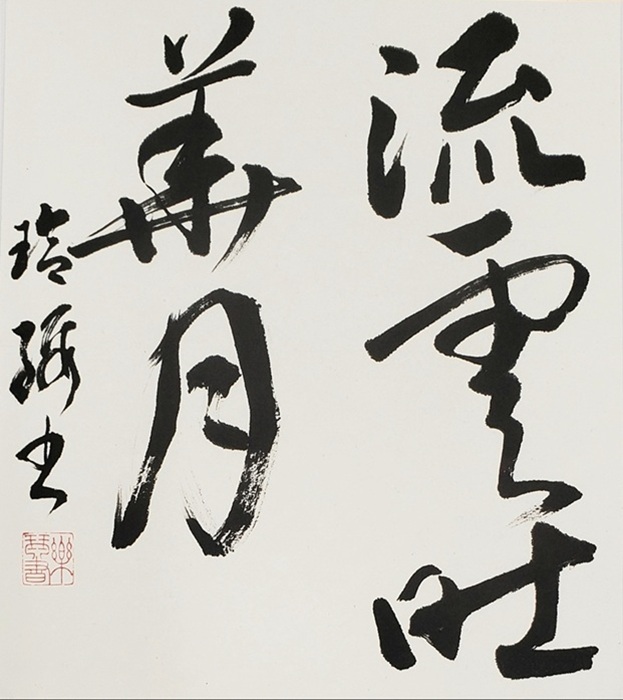 流雲吐
華月
玲 書
樂琴書